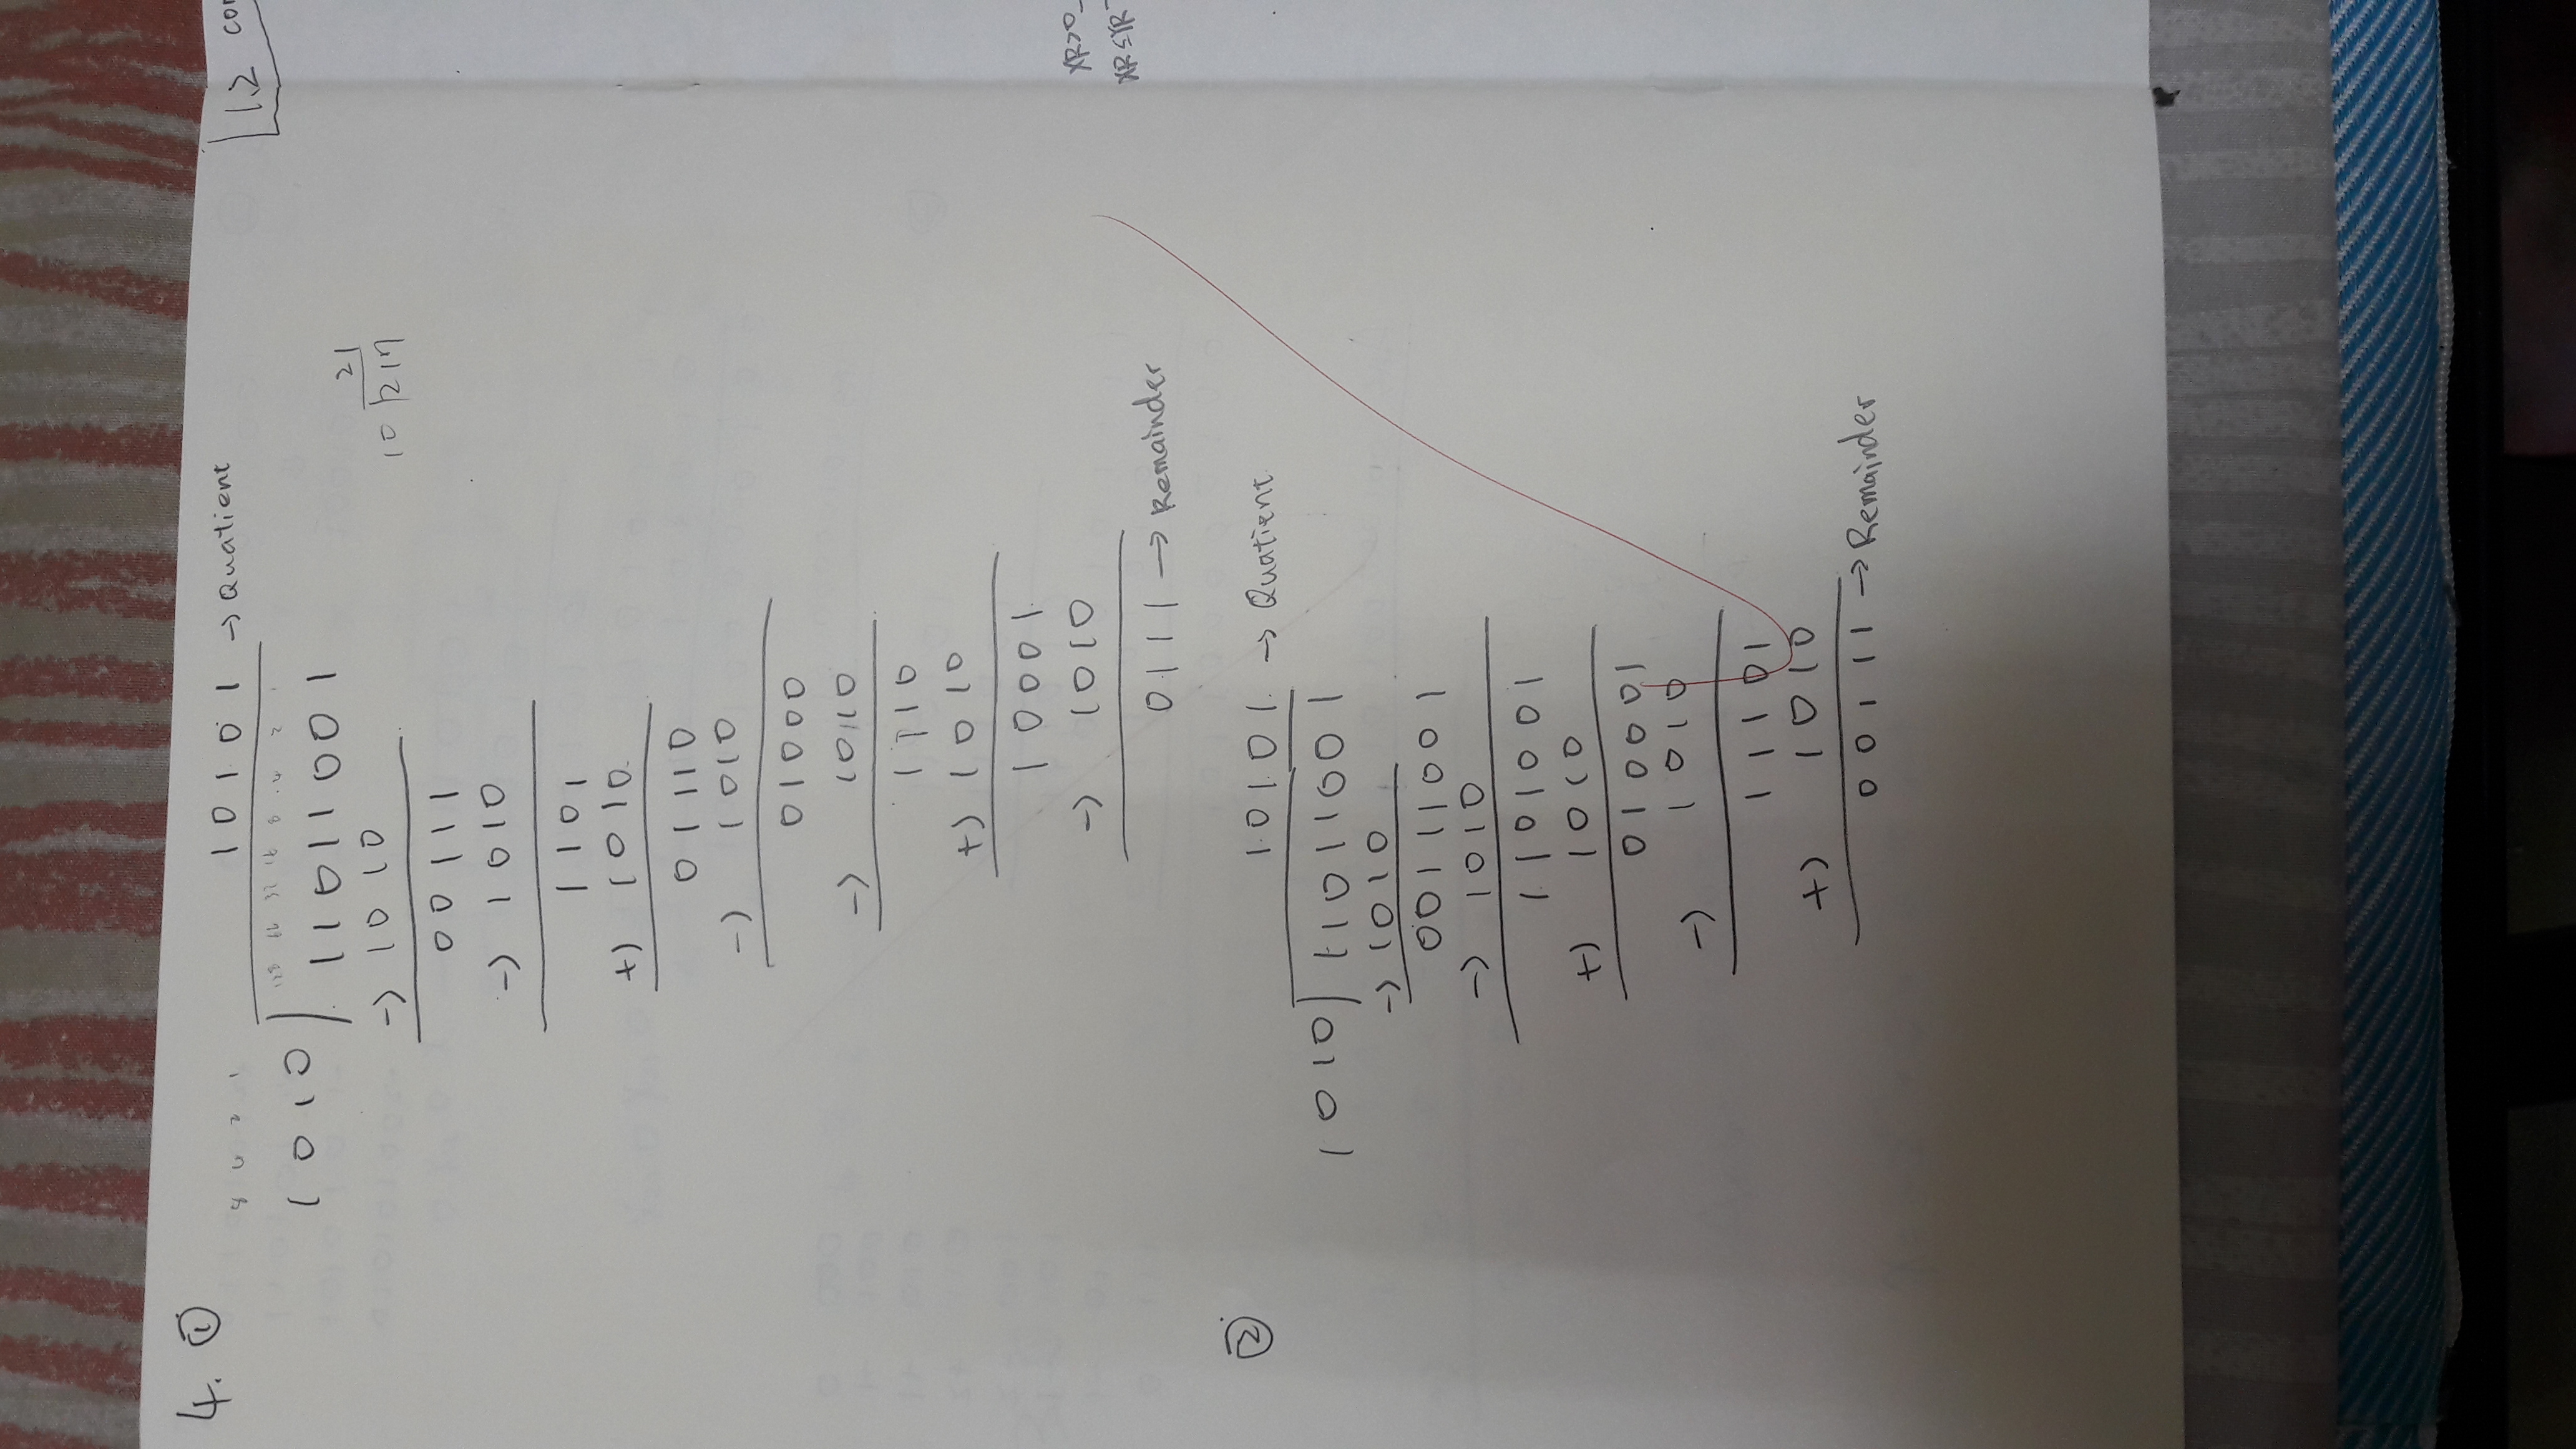 4. ①
10101 → Quatient
8 4 2 1
128 64 32 16 8 4 2 1
1010 ) 11011001
-) 1010
00111
-) 1010
1101
+) 1010
01110
-) 1010
01000
-) 1010
1110
+) 1010
10001
-) 1010
0111 → Remainder
21
10 217
②
10101 → Quatient
1010 ) 11011001
-) 1010
00111001
-) 1010
1101001
+) 1010
010001
-) 1010
11101
+) 1010
00111 → Remainder
1.2
XR>0
XR≤YR